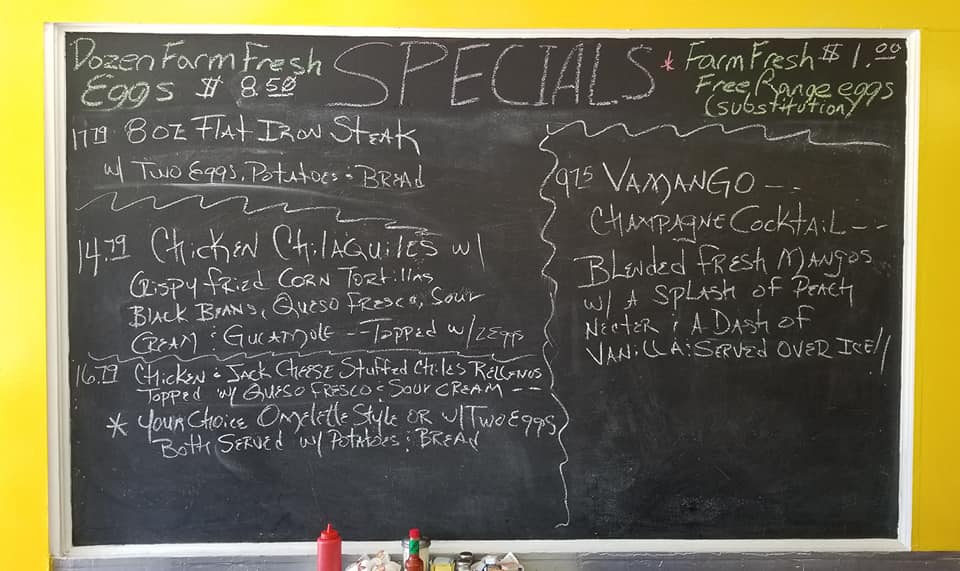 SPECIALS
Dozen Farm Fresh
Eggs $ 8.50
* Farm Fresh $ 1.00
Free Range eggs
(substitution)
17.79 8 oz Flat Iron Steak
w/ Two Eggs, Potatoes & Bread
14.79 Chicken Chilaquiles w/
Crispy fried Corn Tortillas
Black Beans, Queso Fresco, Sour
Cream & Gucamole - Topped w/ 2 Eggs
16.79 Chicken & Jack Cheese Stuffed Chiles Rellenos
Topped w/ Queso Fresco & Sour Cream --
* Your Choice Omelette Style or w/ Two Eggs
Both Served w/ Potatoes & Bread
9.75 VAMANGO --
Champagne Cocktail --
Blended fresh Mangos
w/ A Splash of Peach
Necter & A Dash of
Vanilla & Served Over Ice!/